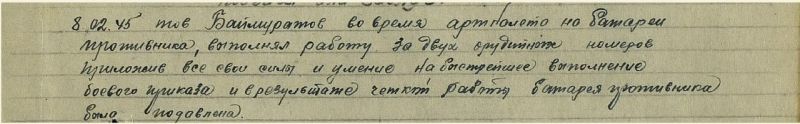 8.02.45 тов Баймуратов во время артполета на батареи
противника, выполнял работу за двух орудийных номеров
приложив все свои силы и умение на быстрейшее выполнение
боевого приказа и в результате четкой работы батарея противника
была подавлена.